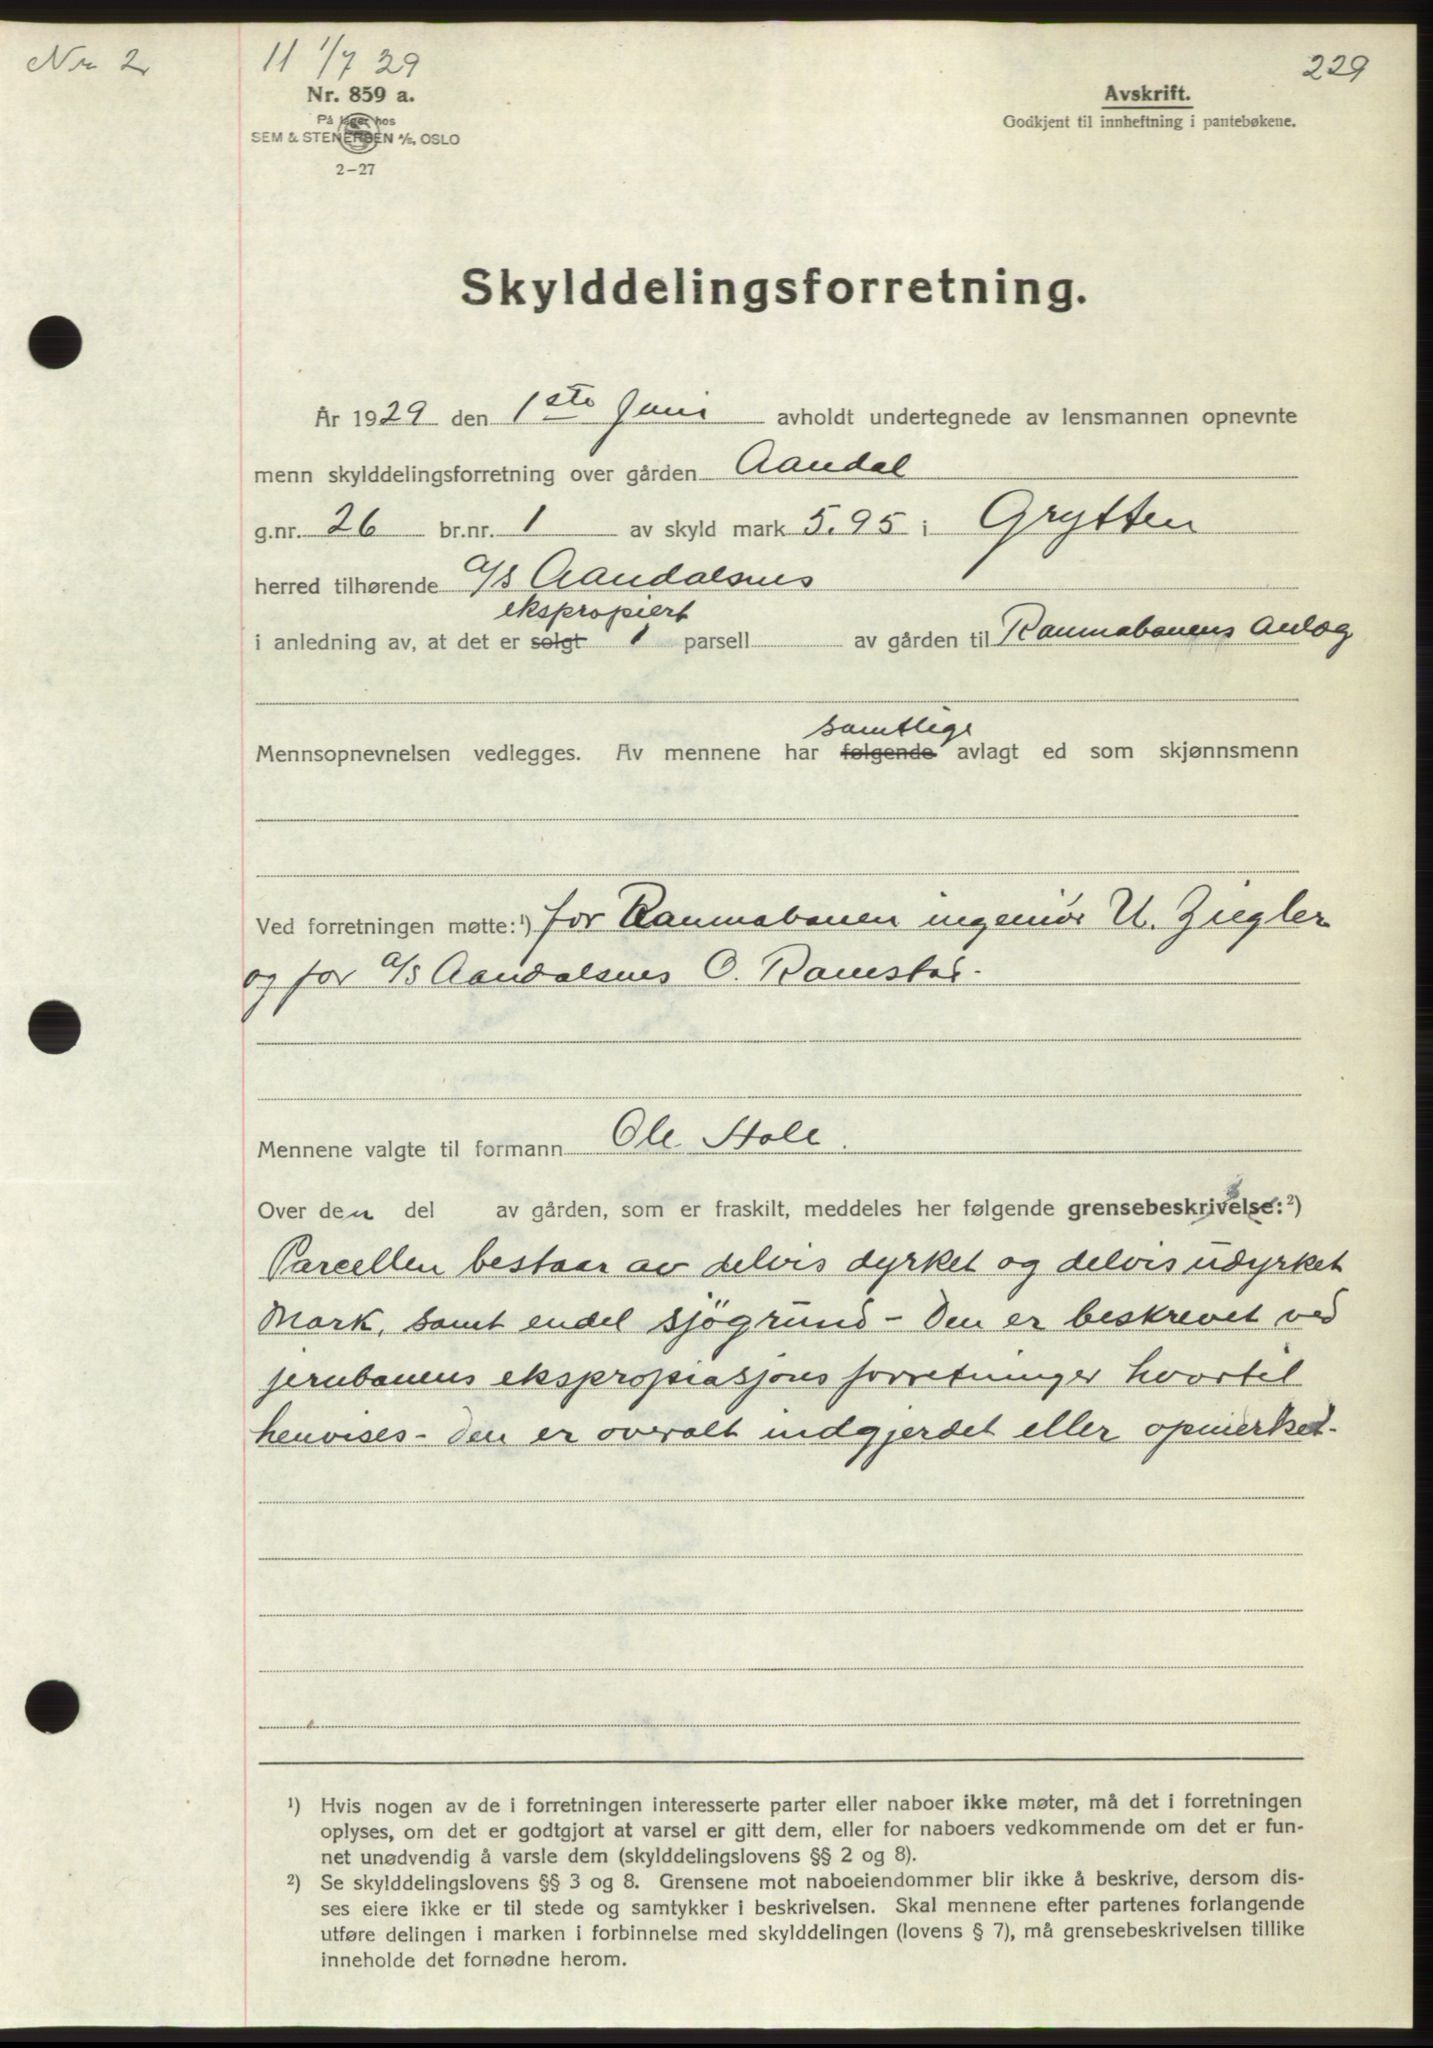 Nr 2
11 1/7 29
229
Nr. 859 a.
På lager hos
SEM & STENERSEN A/S, OSLO
2-27
Avskrift.
Godkjent til innheftning i pantebøkene.
Skylddelingsforretning.
År 1929 den 1ste Juni avholdt undertegnede av lensmannen opnevnte
menn skylddelingsforretning over gården Aandal
g.nr. 26 br.nr. 1 av skyld mark 5.95 i Grytten
herred tilhørende A/S Aandalsnes
ekspropiert
i anledning av, at det er solgt 1 parsell av gården til Raumabanens Anlæg
samtlige
Mennsopnevnelsen vedlegges. Av mennene har følgende avlagt ed som skjønnsmenn
Ved forretningen møtte:¹) for Raumabanen ingeniør U. Ziegler
og for A/S Aandalsnes O. Ramstad.
Mennene valgte til formann Ole Stole.
Over den del av gården, som er fraskilt, meddeles her følgende grensebeskrivelse:²)
Parcellen bestaar av delvis dyrket og delvis udyrket
Mark, samt endel sjögrund - Den er beskrevet ved
jernbanens ekspropiasjons forretninger hvortil
henvises - Den er overalt indgjerdet eller opmerket.
¹) Hvis nogen av de i forretningen interesserte parter eller naboer ikke møter, må det i forretningen
oplyses, om det er godtgjort at varsel er gitt dem, eller for naboers vedkommende om det er fun-
net unødvendig å varsle dem (skylddelingslovens §§ 2 og 8).
²) Se skylddelingslovens §§ 3 og 8. Grensene mot naboeiendommer blir ikke å beskrive, dersom dis-
ses eiere ikke er til stede og samtykker i beskrivelsen. Skal mennene efter partenes forlangende
utføre delingen i marken i forbinnelse med skylddelingen (lovens § 7), må grensebeskrivelsen tillike
inneholde det fornødne herom.